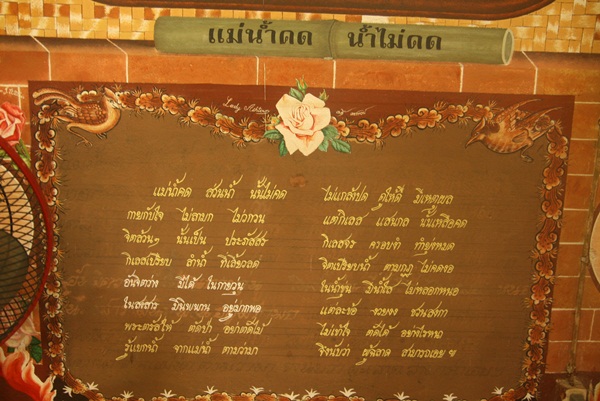 แม่น้ำคด น้ำไม่คด
แม่น้ำคด ส่วนน้ำ นั้นไม่คด ไม่แกล้งปด ดูให้ดี มีเหตุผล
กายกับใจ ไม่ลามก ไม่วกวน แต่กิเลส แสนกล นั้นเหลือคด
จิตล้วนๆ นั้นเป็น ประภัสสร กิเลสจร ครอบงำ ทำยุ่งหมด
กิเลสเปรียบ ลำน้ำ ที่เลี้ยวลด จิตเปรียบน้ำ ตามกฎ ไม่คดงอ
อันจิตว่าง มีได้ ในกายวุ่น ในน้ำขุ่น มีน้ำใส ไม่หลอกหนอ
ในสงสาร มีนิพพาน อยู่มากพอ แต่ละข้อ งวยงง ชวนสงกา
พระตรัสให้ ตัดป่า อย่าตัดไม้ ไม่เข้าใจ ตัดได้ อย่างไรหนา
รู้แยกน้ำ จากแม่น้ำ ตามว่ามา จึงนับว่า ผู้ฉลาด สามารถเอย ฯ